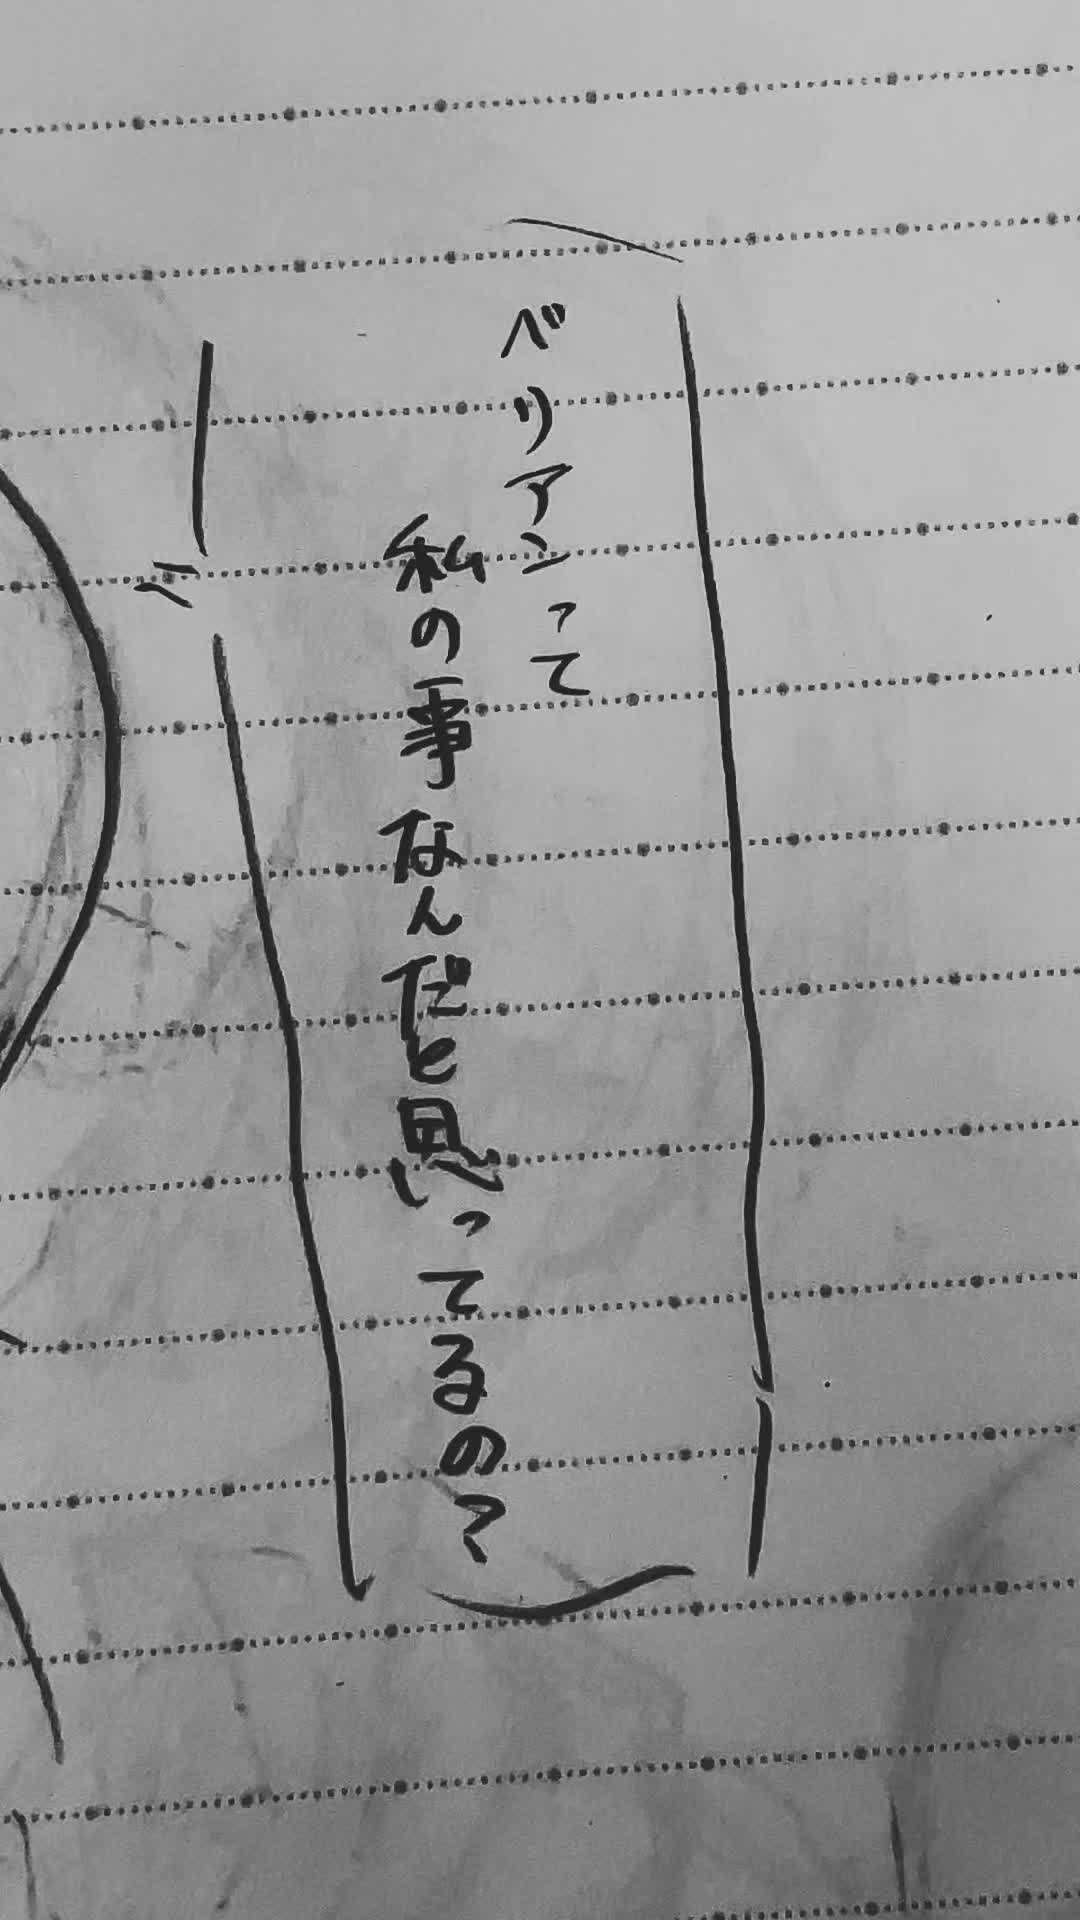 ベリアンって
私の事なんだと思ってるの?